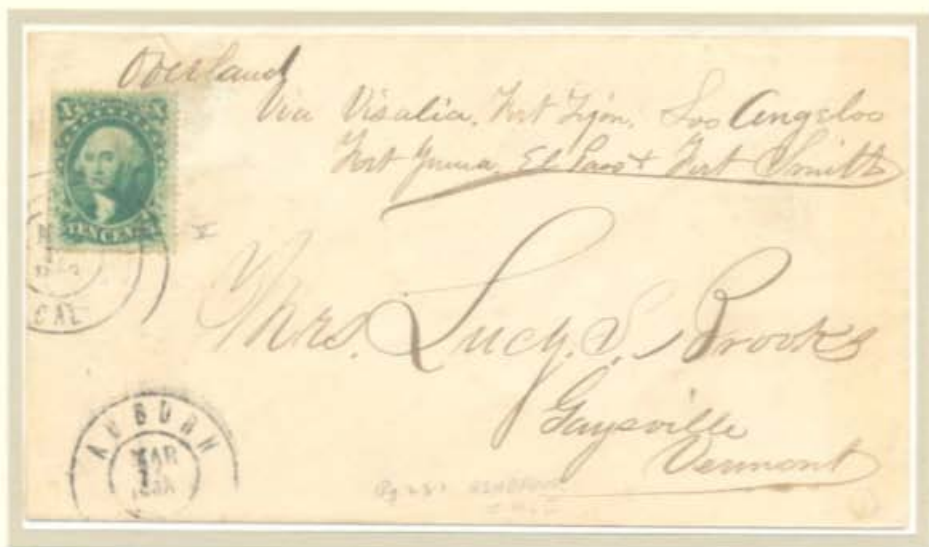 Overland
Via Visalia, Fort Tejon, Los Angelos
Fort Yuma, El Paso + Fort Smith
X X
TEN CENTS
CAL
Mrs. Lucy. S. Brooks
Gaysville
Vermont
AUBURN
MAR
Pg 251 ASHBROOK